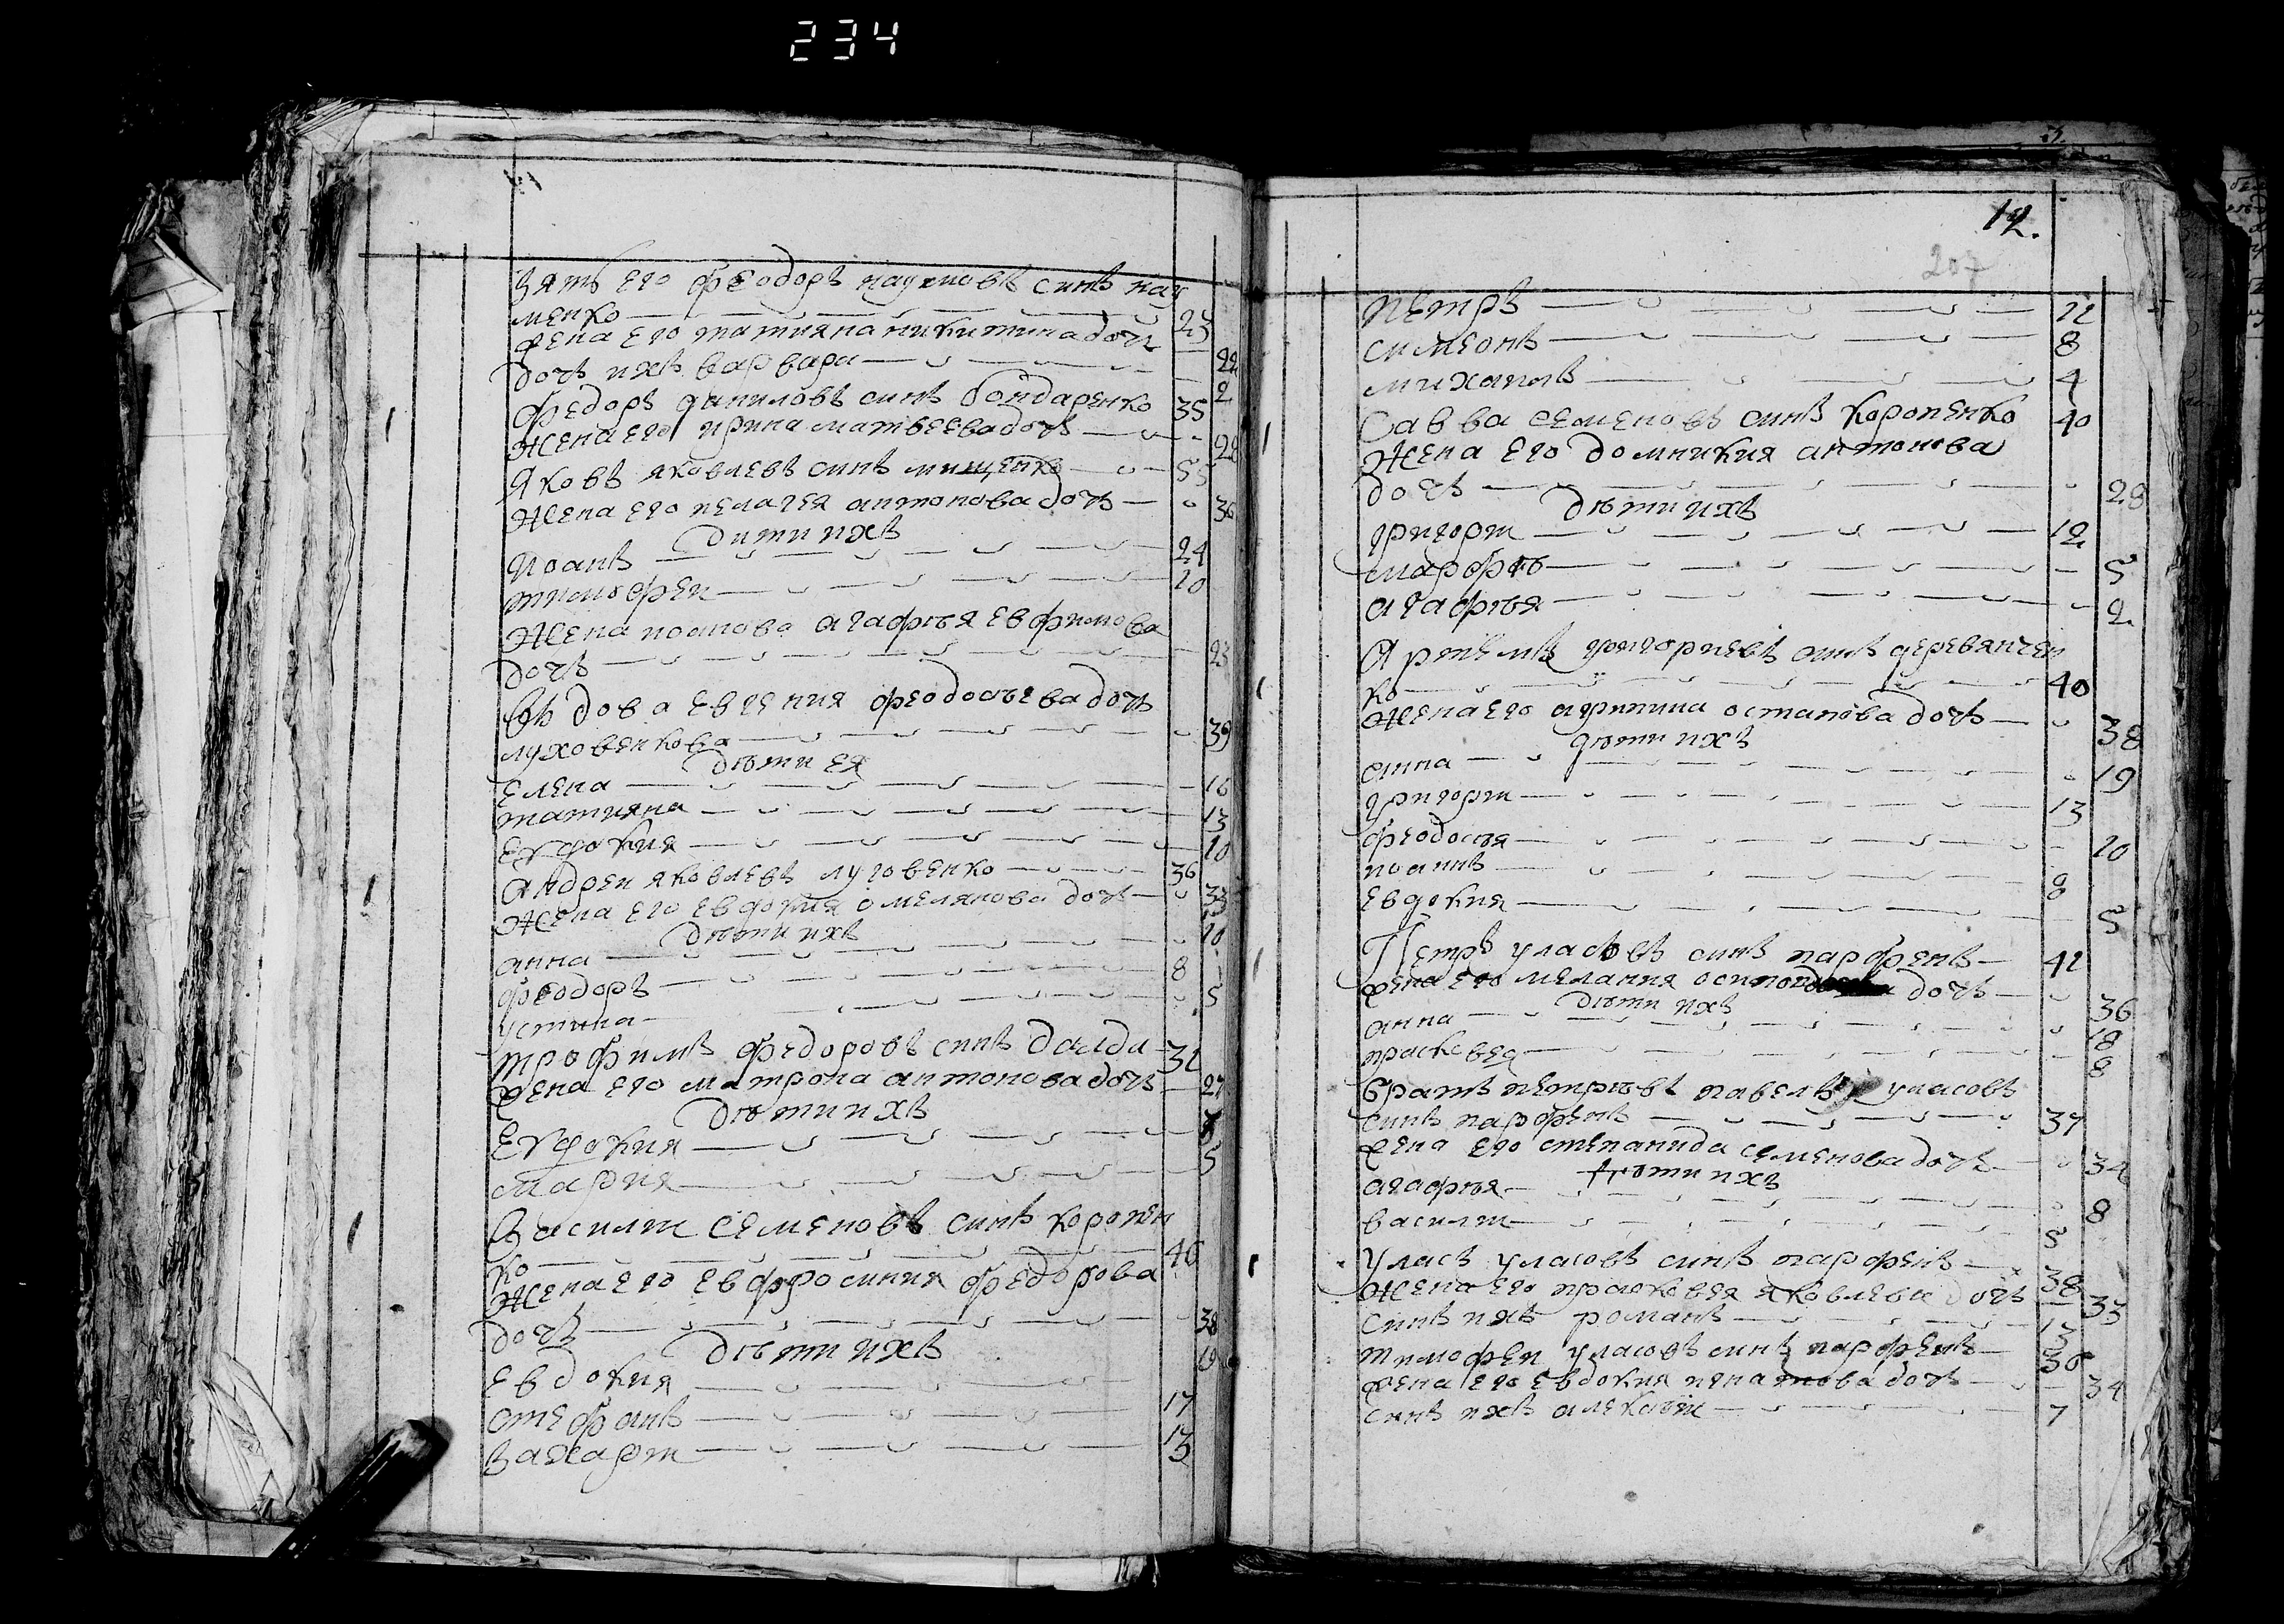 234
Зять его феодоръ наумовъ синъ нау
менко 23
жена его татияна никитина дочъ 22
дочъ ихъ варвара 2
федоръ даниловъ синъ бондаренко 35
жена его ирина матвеева дочъ 22
яковъ яковлевъ синъ мищенко 55
жена его пелагея антонова дочъ 36
дити ихъ
Иоанъ 24
тимофеи 10
жена иоанова агафѣя евфимова
дочъ 23
въдова евгения феодосѣева дочъ
луховенкова 39
дѣти ея
елена 16
татияна 13
евдокия 10
Андреи яковлевъ луговенко 36
жена его евдокия омелянова дочъ 33
дѣти ихъ
анна 10
феодоръ 8
устина 5
трофимъ федоровъ синъ далда 31
жена его матрона антонова дочъ 27
дѣти ихъ
евдокия 8
мария 5
Василии семеновъ синъ коропен
ко 46
жена его евфросиния федорова
дочъ 38
дѣти ихъ
евдокия 19
стефанъ 17
захарии 13
12.
207
петръ 11
симеонъ 8
михаилъ 4
Савва семеновъ синъ коропенко 40
жена его домникия антонова
дочъ 28
дѣти ихъ
григории 12
марфѣ 5
агафѣя 2
Артемъ григориевъ синъ деревянчен
ко 40
жена его агрипина остапова дочъ 38
дѣти ихъ
анна 19
григории 13
феодосѣя 10
иоаннъ 8
евдокия 5
Петръ уласовъ синъ парфенъ 41
жена его мелания осипова дочъ 36
дѣти ихъ
анна 18
праскевея 8
братъ петровъ павелъ уласовъ
синъ парфенъ 37
жена его степанида семенова дочъ 34
дѣти ихъ
агафѣя 8
василии 5
уласъ уласовъ синъ парфенъ 38
жена его праскевея яковлева дочъ 33
синъ ихъ романъ 13
тимофеи уласовъ синъ парфенъ 36
жена его евдокия игнатова дочъ 34
синъ ихъ алексѣи 7